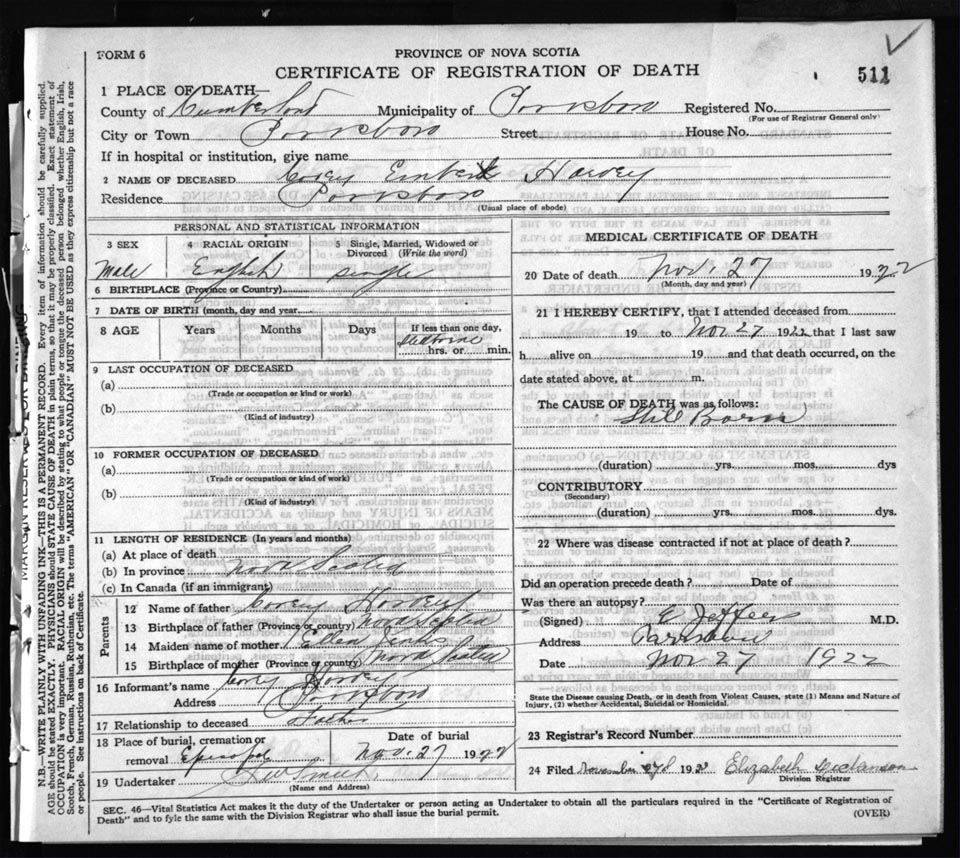 FORM 6
PROVINCE OF NOVA SCOTIA
CERTIFICATE OF REGISTRATION OF DEATH
511
1 PLACE OF DEATH—
County of Cumberland Municipality of Parrsboro Registered No.
(For use of Registrar General only)
City or Town Parrsboro Street House No.
If in hospital or institution, give name
2 NAME OF DECEASED Corey Harvey
Residence Parrsboro
(Usual place of abode)
PERSONAL AND STATISTICAL INFORMATION
3 SEX 4 RACIAL ORIGIN 5 Single, Married, Widowed or Divorced (Write the word)
Male English single
6 BIRTHPLACE (Province or Country)
7 DATE OF BIRTH (month, day and year)
8 AGE Years Months Days If less than one day,
hrs. or min.
9 LAST OCCUPATION OF DECEASED
(a)
(Trade or occupation or kind or work)
(b)
(Kind of industry)
10 FORMER OCCUPATION OF DECEASED
(a)
(Trade or occupation or kind of work)
(b)
(Kind of industry)
11 LENGTH OF RESIDENCE (In years and months)
(a) At place of death
(b) In province Nova Scotia
(c) In Canada (if an immigrant)
Parents
12 Name of father Corey Harvey
13 Birthplace of father (Province or country) Nova Scotia
14 Maiden name of mother Ellen
15 Birthplace of mother (Province or country) Nova Scotia
16 Informant's name Corey Harvey
Address Parrsboro
17 Relationship to deceased Father
18 Place of burial, cremation or removal Date of burial
Nov. 27 1922
19 Undertaker
(Name and Address)
MEDICAL CERTIFICATE OF DEATH
20 Date of death Nov. 27 1922
(Month, day and year)
21 I HEREBY CERTIFY, that I attended deceased from
19 to Nov 27 1922, that I last saw
h alive on 19 and that death occurred, on the
date stated above, at m.
The CAUSE OF DEATH was as follows:
Stil Born
(duration) yrs. mos. dys
CONTRIBUTORY
(Secondary)
(duration) yrs. mos. dys.
22 Where was disease contracted if not at place of death?
Did an operation precede death? Date of
Was there an autopsy?
(Signed) M.D.
Address Parrsboro
Date Nov 27 1922
State the Disease causing Death, or in death from Violent Causes, state (1) Means and Nature of
Injury, (2) whether Accidental, Suicidal or Homicidal.
23 Registrar's Record Number
24 Filed November 192 Elizabeth
Division Registrar
SEC. 46—Vital Statistics Act makes it the duty of the Undertaker or person acting as Undertaker to obtain all the particulars required in the "Certificate of Registration of
Death" and to fyle the same with the Division Registrar who shall issue the burial permit.
(OVER)
N.B.—WRITE PLAINLY WITH UNFADING INK—THIS IS A PERMANENT RECORD. Every item of information should be carefully supplied.
AGE should be stated EXACTLY. PHYSICIANS should STATE CAUSE OF DEATH in plain terms, so that it may be properly classified. Exact statement of
OCCUPATION is very important. RACIAL ORIGIN will be described by stating to what people or tongue the deceased person belonged whether English, Irish,
Scotch, French, German, Russian, Ruthenian, etc. The terms "AMERICAN" OR "CANADIAN" MUST NOT BE USED as they express citizenship but not a race
or people. See instructions on back of Certificate.